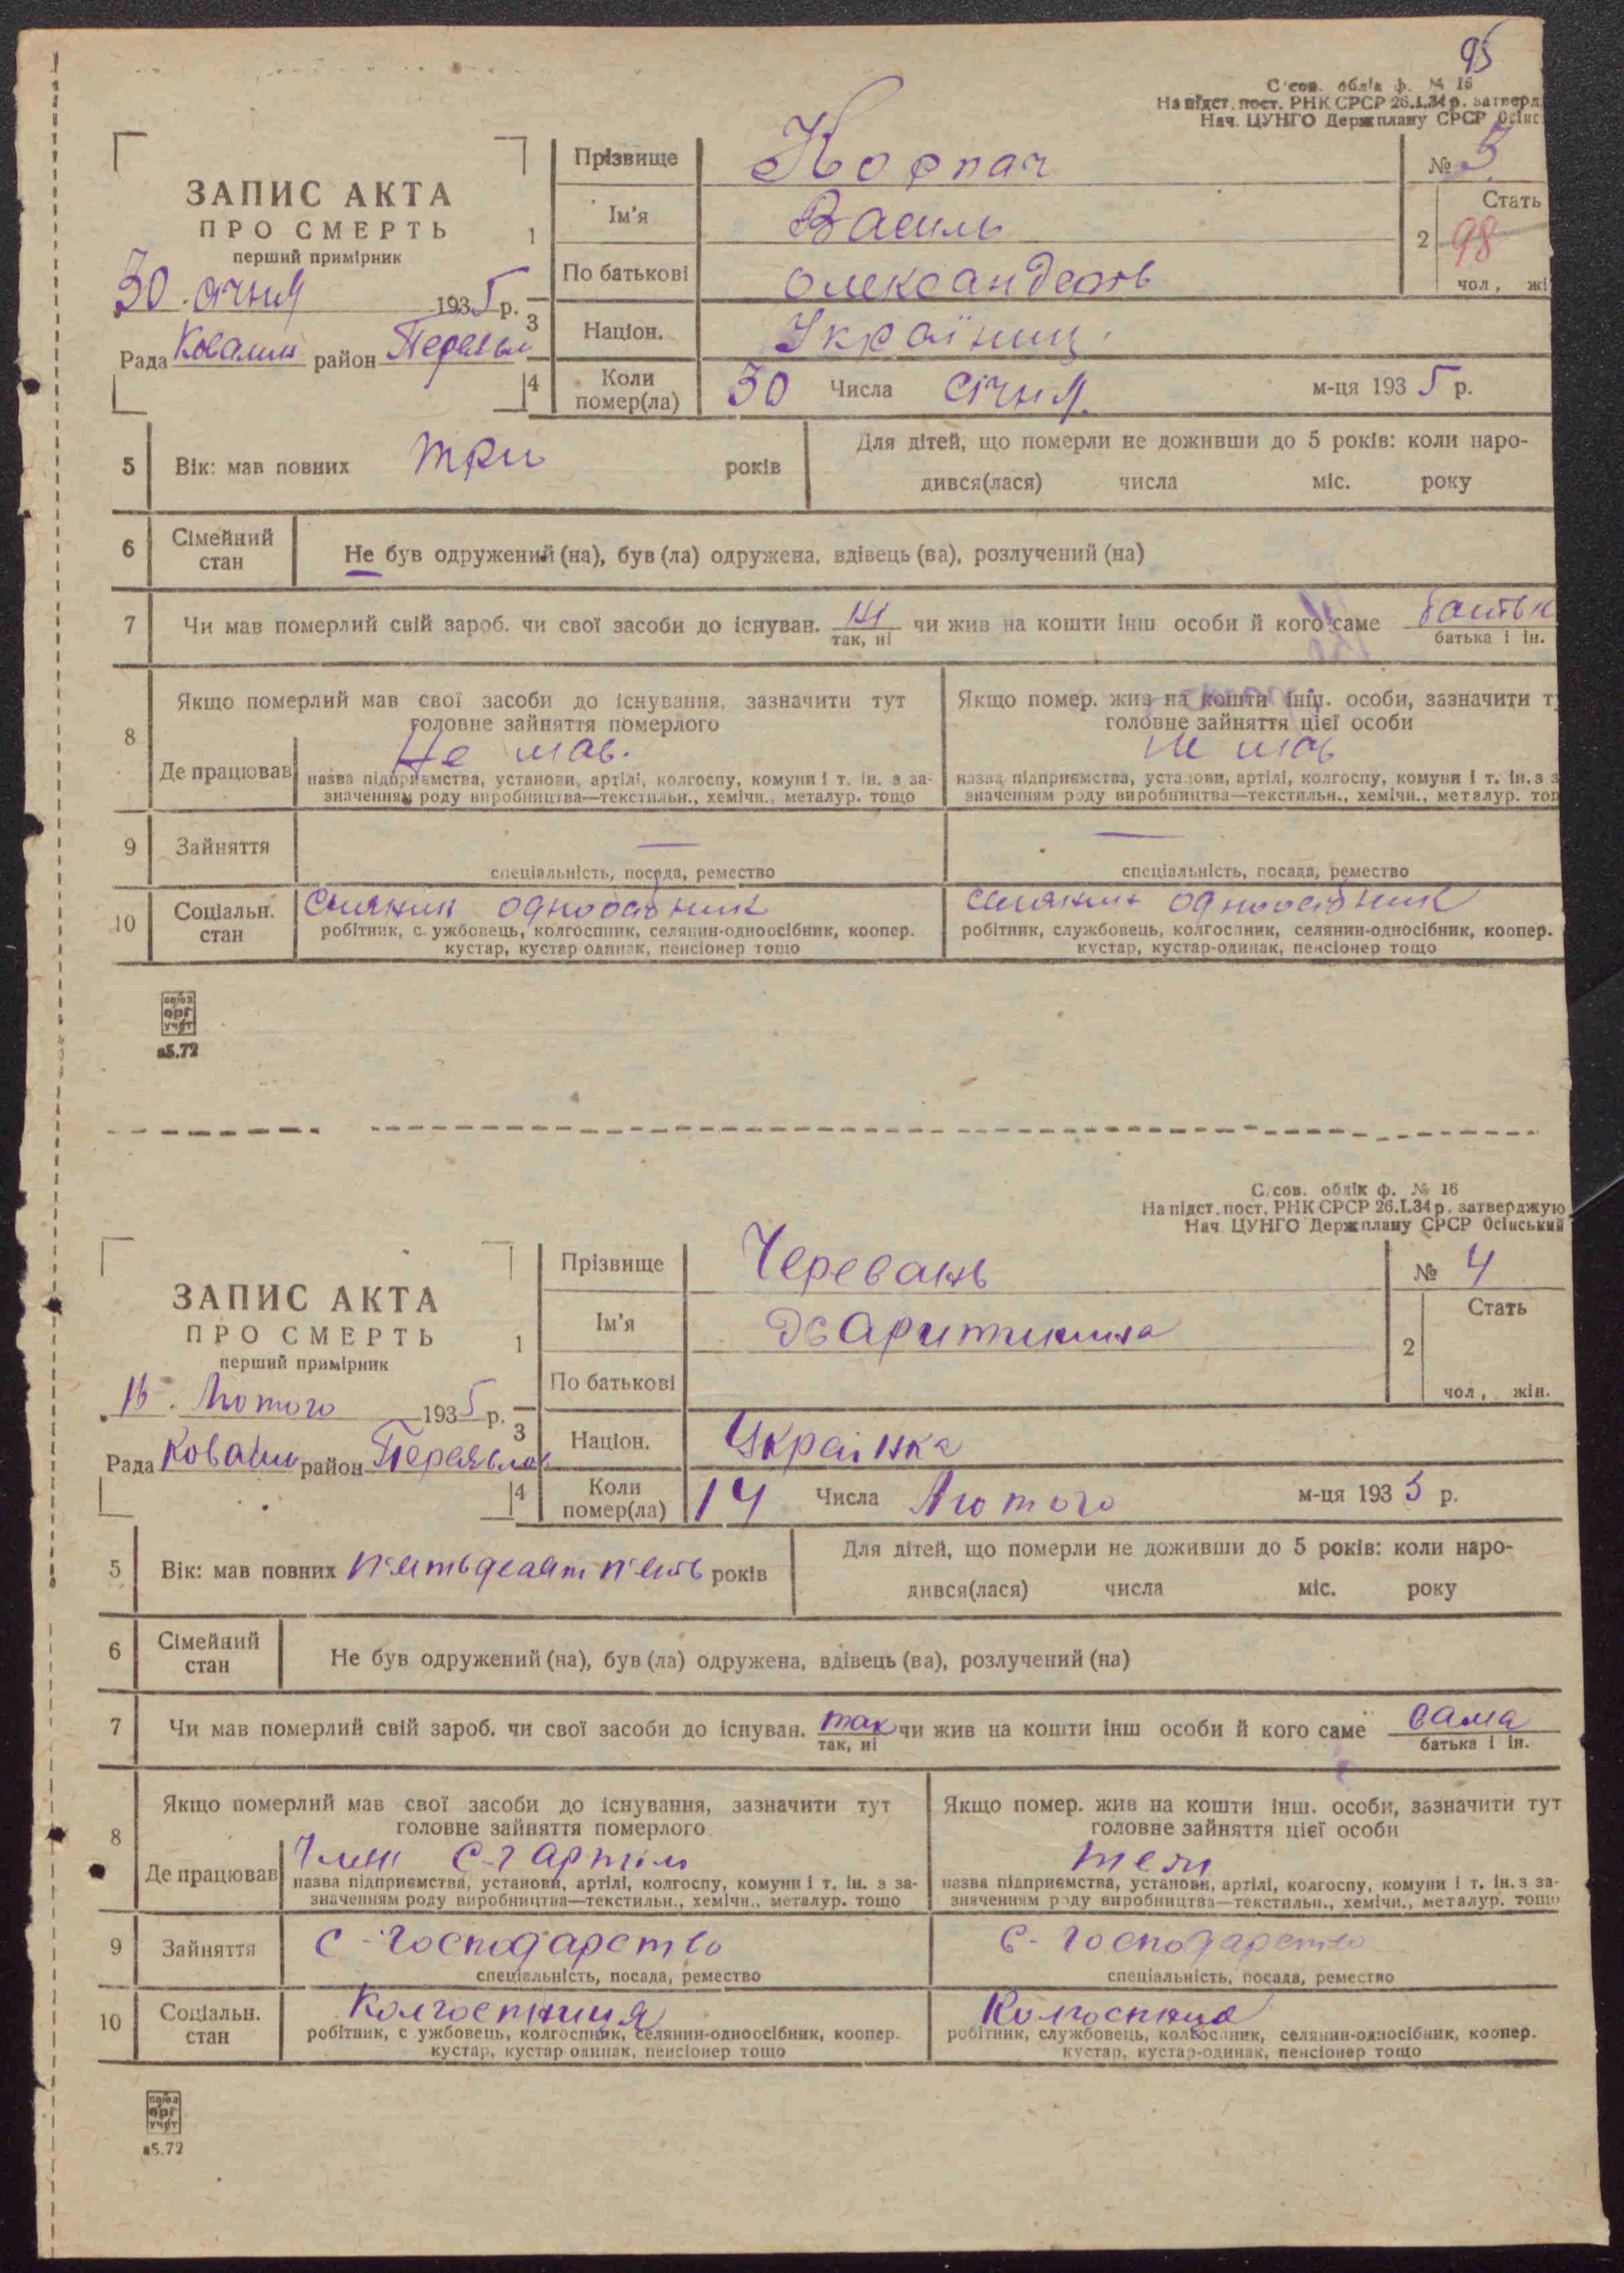 95
С'сов. облік ф. № 16
На підст. пост. РНК СРСР 26.І.34 р. затверд
Нач. ЦУНГО Держплану СРСР Осінс
ЗАПИС АКТА
ПРО СМЕРТЬ
перший примірник
30 січня 1935 р.
Рада район
1 Прізвище
№
Ім'я Василь
2 Стать
98
чол, жі
По батькові
3 Націон.
4 Коли помер(ла) 30 Числа січня м-ця 1935 р.
5 Вік: мав повних три років
Для дітей, що померли не доживши до 5 років: коли наро-
дився(лася) числа міс. року
6 Сімейний стан Не був одружений (на), був (ла) одружена, вдівець (ва), розлучений (на)
7 Чи мав померлий свій зароб. чи свої засоби до існуван. ні чи жив на кошти інш особи й кого саме
так, ні батька і ін.
8 Якщо померлий мав свої засоби до існування, зазначити тут
головне зайняття померлого
Якщо помер. жив на кошти інш. особи, зазначити т
головне зайняття цієї особи
Де працював Не мав.
не мав
назва підприємства, установи, артілі, колгоспу, комуни і т. ін. з за-
значенням роду виробництва—текстильн., хемічн., металур. тощо
назва підприємства, установи, артілі, колгоспу, комуни і т. ін. з з
значенням роду виробництва—текстильн., хемічн., металур. тощ
9 Зайняття — —
спеціальність, посада, ремество
спеціальність, посада, ремество
10 Соціальн. стан
робітник, с ужбовець, колгоспник, селянин-одноосібник, коопер.
кустар, кустар одинак, пенсіонер тощо
робітник, службовець, колгоспник, селянин-односібник, коопер.
кустар, кустар-одинак, пенсіонер тощо
союз
орг
учёт
а5.72
С/сов. облік ф. № 16
На підст. пост. РНК СРСР 26.І.34 р. затверджую
Нач ЦУНГО Держплану СРСР Осінський
ЗАПИС АКТА
ПРО СМЕРТЬ
перший примірник
16. Лютого 1935 р.
Рада район
1 Прізвище Черевань
№ 4
Ім'я
2 Стать
чол, жін.
По батькові
3 Націон. Українка
4 Коли помер(ла) 14 Числа Лютого м-ця 1935 р.
5 Вік: мав повних років
Для дітей, що померли не доживши до 5 років: коли наро-
дився(лася) числа міс. року
6 Сімейний стан Не був одружений (на), був (ла) одружена, вдівець (ва), розлучений (на)
7 Чи мав померлий свій зароб. чи свої засоби до існуван. так чи жив на кошти інш особи й кого саме сама
так, ні батька і ін.
8 Якщо померлий мав свої засоби до існування, зазначити тут
головне зайняття померлого
Якщо помер. жив на кошти інш. особи, зазначити тут
головне зайняття цієї особи
Де працював Член с-г артіли
теж
назва підприємства, установи, артілі, колгоспу, комуни і т. ін. з за-
значенням роду виробництва—текстильн., хемічн., металур. тощо
назва підприємства, установи, артілі, колгоспу, комуни і т. ін. з за-
значенням роду виробництва—текстильн., хемічн., металур. тощо
9 Зайняття с-господарство
с-господарство
спеціальність, посада, ремество
спеціальність, посада, ремество
10 Соціальн. стан Колгоспниця
Колгоспниця
робітник, с ужбовець, колгоспник, селянин-одноосібник, коопер.
кустар, кустар одинак, пенсіонер тощо
робітник, службовець, колгоспник, селянин-односібник, коопер.
кустар, кустар-одинак, пенсіонер тощо
союз
орг
учёт
а5.72